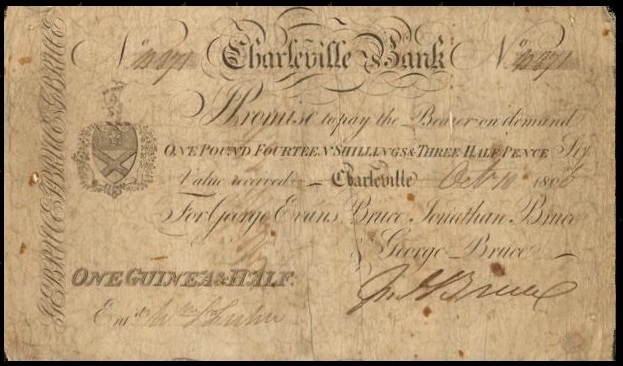 No Charleville Bank No
I Promise to pay the Bearer on demand
ONE POUND FOURTEEN SHILLINGS & THREE HALF PENCE
Value received Charleville Oct 180
For George Evans Bruce Jonathan Bruce
& George Bruce
ONE GUINEA & HALF
Entd
G.E.BRUCE J.BRUCE & G.BRUCE